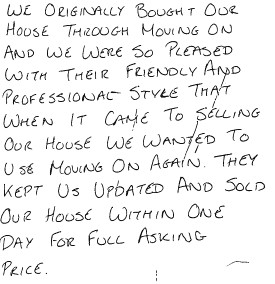 WE ORIGINALLY BOUGHT OUR
HOUSE THROUGH MOVING ON
AND WE WERE SO PLEASED
WITH THEIR FRIENDLY AND
PROFESSIONAL STYLE THAT
WHEN IT CAME TO SELLING
OUR HOUSE WE WANTED TO
USE MOVING ON AGAIN. THEY
KEPT US UPDATED AND SOLD
OUR HOUSE WITHIN ONE
DAY FOR FULL ASKING
PRICE.